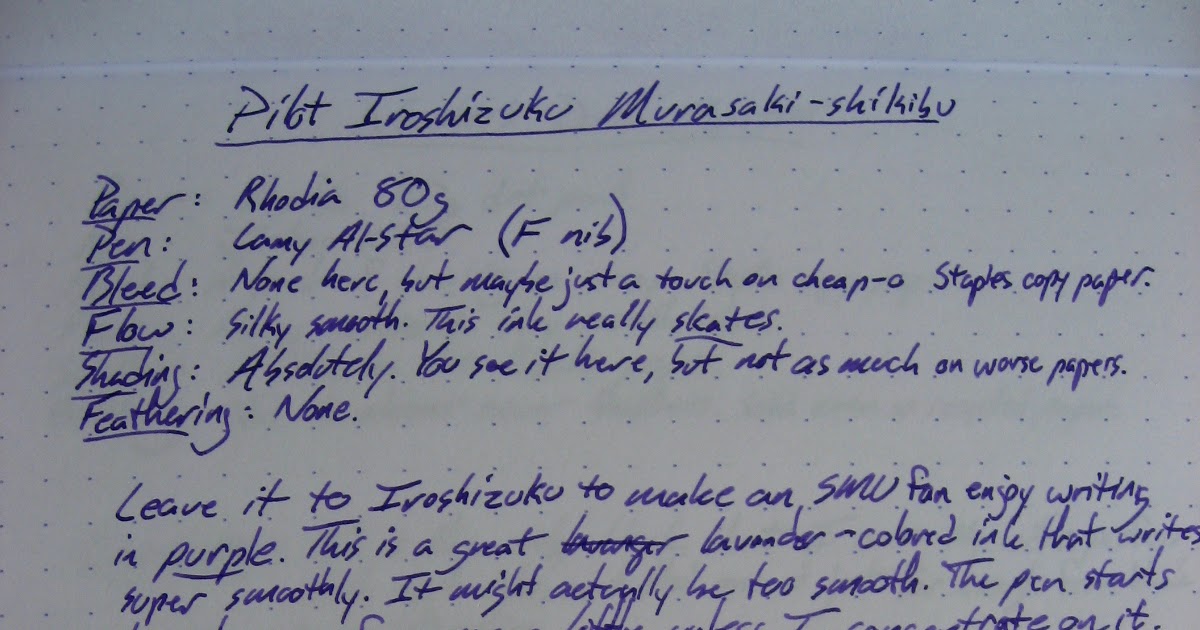 Pilot Iroshizuku Murasaki-shikibu
Paper: Rhodia 80g
Pen: Lamy Al-Star (F nib)
Bleed: None here, but maybe just a touch on cheap-o Staples copy paper.
Flow: Silky smooth. This ink really skates.
Shading: Absolutely. You see it here, but not as much on worse papers.
Feathering: None.
Leave it to Iroshizuku to make an SMU fan enjoy writing
in purple. This is a great lavender-colored ink that writes
super smoothly. It might actually be too smooth. The pen starts
unless I concentrate on it.